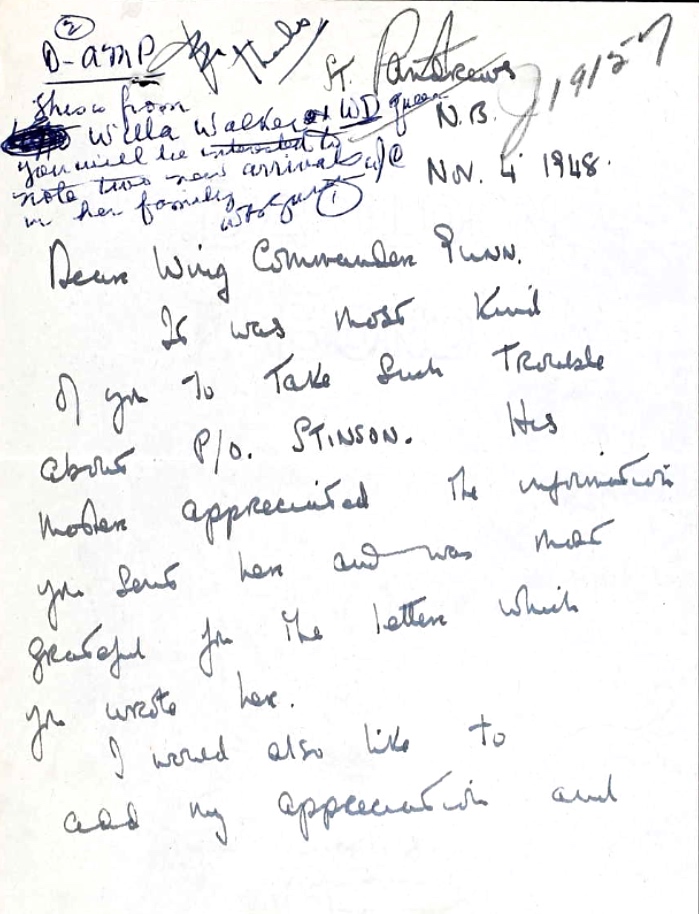 ②
D-AMP
Thanks
St. Andrews
J 19157
N.B.
Nov. 4 1948.
This is from
Willa Walker WD queen
you will be interested to
note two new arrivals
in her family
①
Dear Wing Commander Gunn.
It was most kind
of you to take such trouble
about P/O. STINSON. His
mother appreciated the information
you sent her and was most
grateful for the letter which
you wrote her.
I would also like to
add my appreciation and